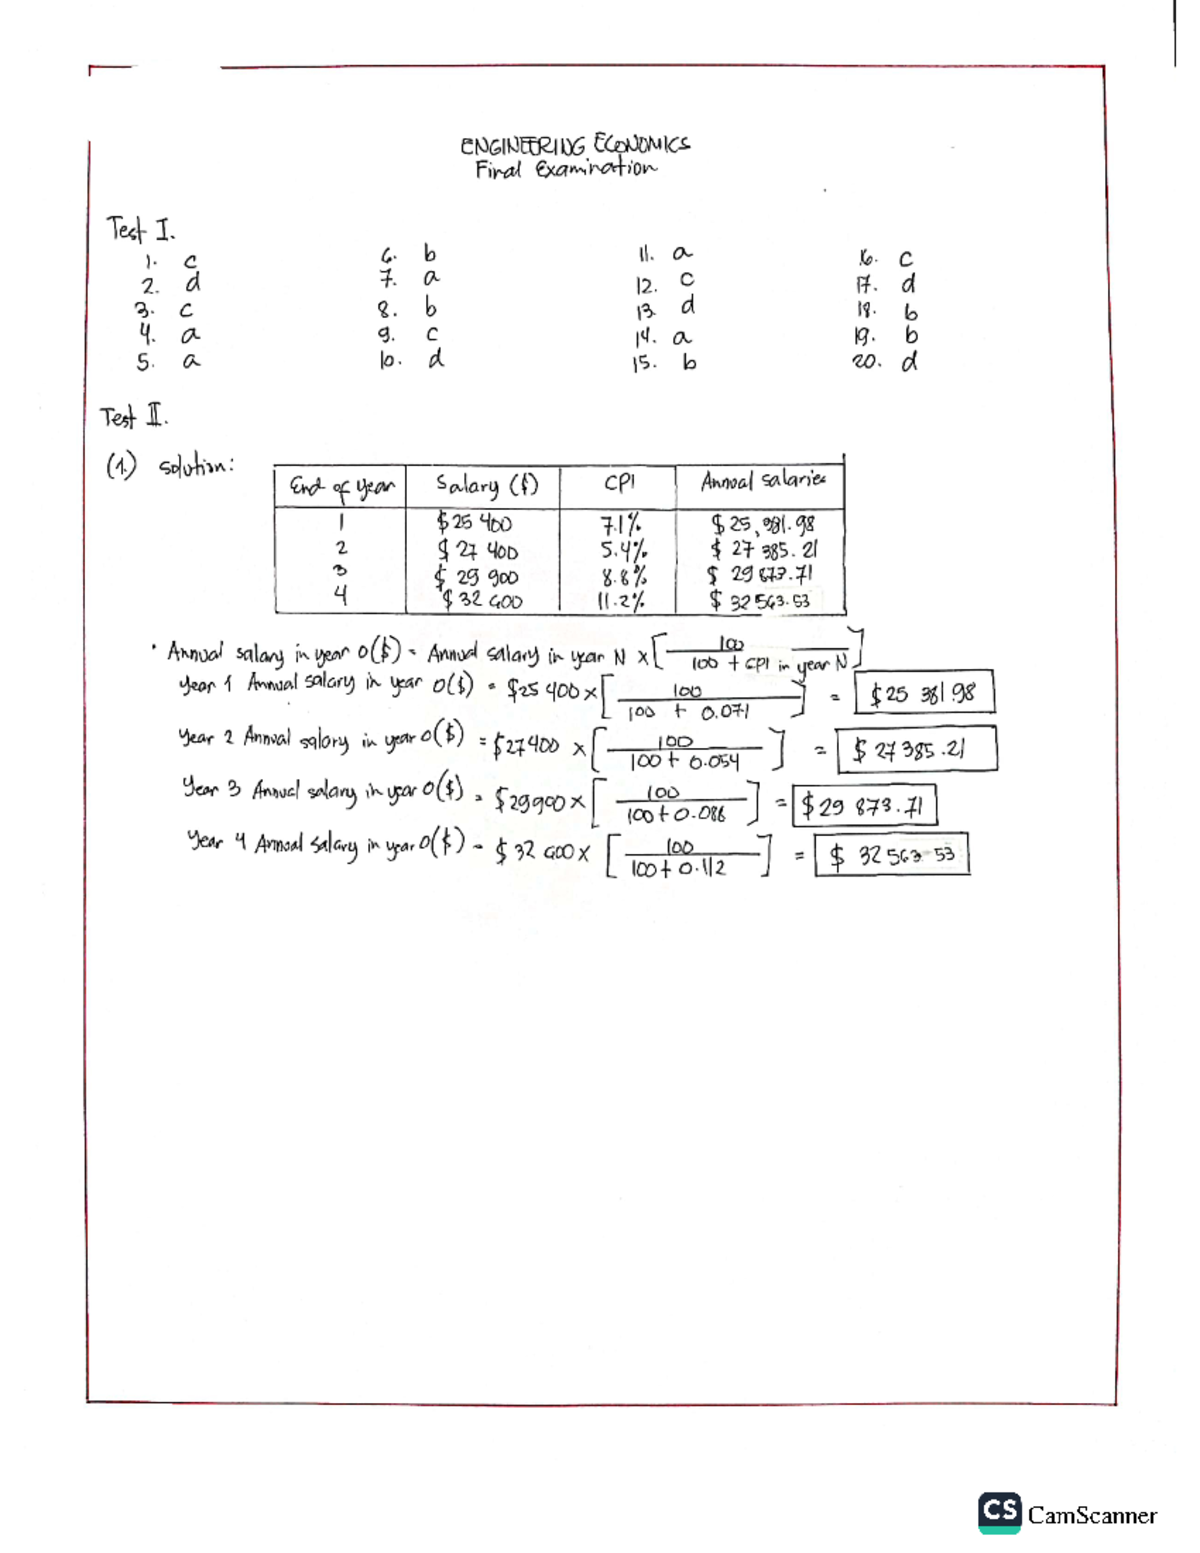 ENGINEERING ECONOMICS
Final Examination
Test I.
1. c 6. b 11. a 16. c
2. d 7. a 12. c 17. d
3. c 8. b 13 d 18. b
4. a 9. c 14. a 19. b
5. a 10. d 15. b 20. d
Test II.
(1.) solution:
End of year Salary ($) CPI Annual salaries
1 $25 400 7.1% $25,981.98
2 $ 27 400 5.4% $ 27 385.21
3 $ 29 900 8.6% $ 29 873.71
4 $32 600 11.2% $ 32563.53
• Annual salary in year 0($) = Annual salary in year N x [100 / 100 + CPI in year N]
Year 1 Annual salary in year 0($) = $25 400 x [100 / 100 + 0.071] = $25 381.98
Year 2 Annual salary in year 0($) = $27400 x [100 / 100 + 0.054] = $ 27385.21
Year 3 Annual salary in year 0($) = $29900 x [100 / 100 + 0.086] = $29 873.71
Year 4 Annual salary in year 0($) = $ 32 600 x [100 / 100 + 0.112] = $ 32563.53
CS CamScanner